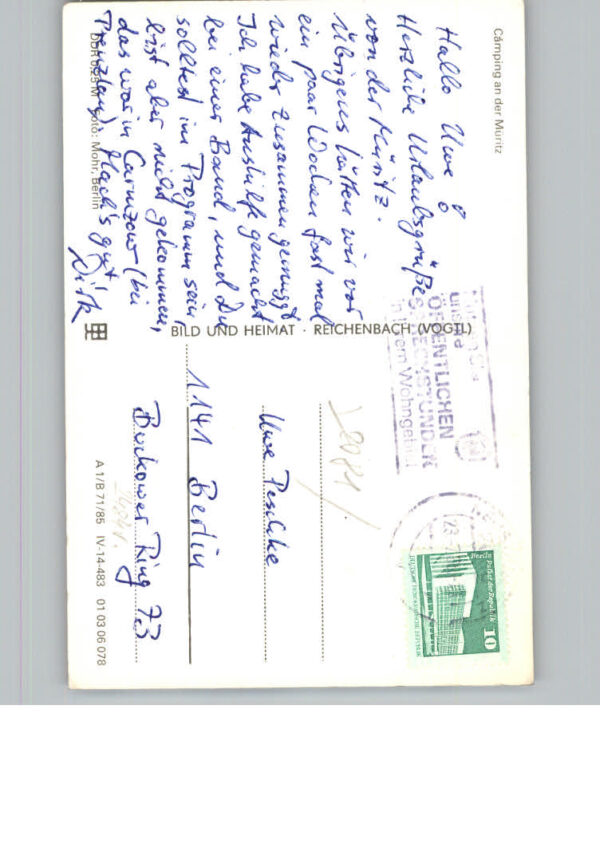 Camping an der Müritz
Hallo Uwe!
Herzliche Urlaubsgrüße
von der Müritz.
Übrigens hätten wir vor
ein paar Wochen fast mal
wieder zusammen gemuggt.
Ich habe Aushilfe gemacht
bei einer Band, und Du
solltest im Programm sein,
bist aber nicht gekommen,
das war in Carmzow (bei
Prenzlau). Mach's gut!
Dirk
Foto: Mohr, Berlin
BILD UND HEIMAT · REICHENBACH (VOGTL)
unsere
ÖFFENTLICHEN
SPRECHSTUNDEN
in Ihrem Wohngebiet
Berlin Palast der Republik
10
DEUTSCHE DEMOKRATISCHE REPUBLIK
Uwe Peschke
1141 Berlin
Buckower Ring 73
A 1/B 71/85 IV-14-483 01 03 06 078